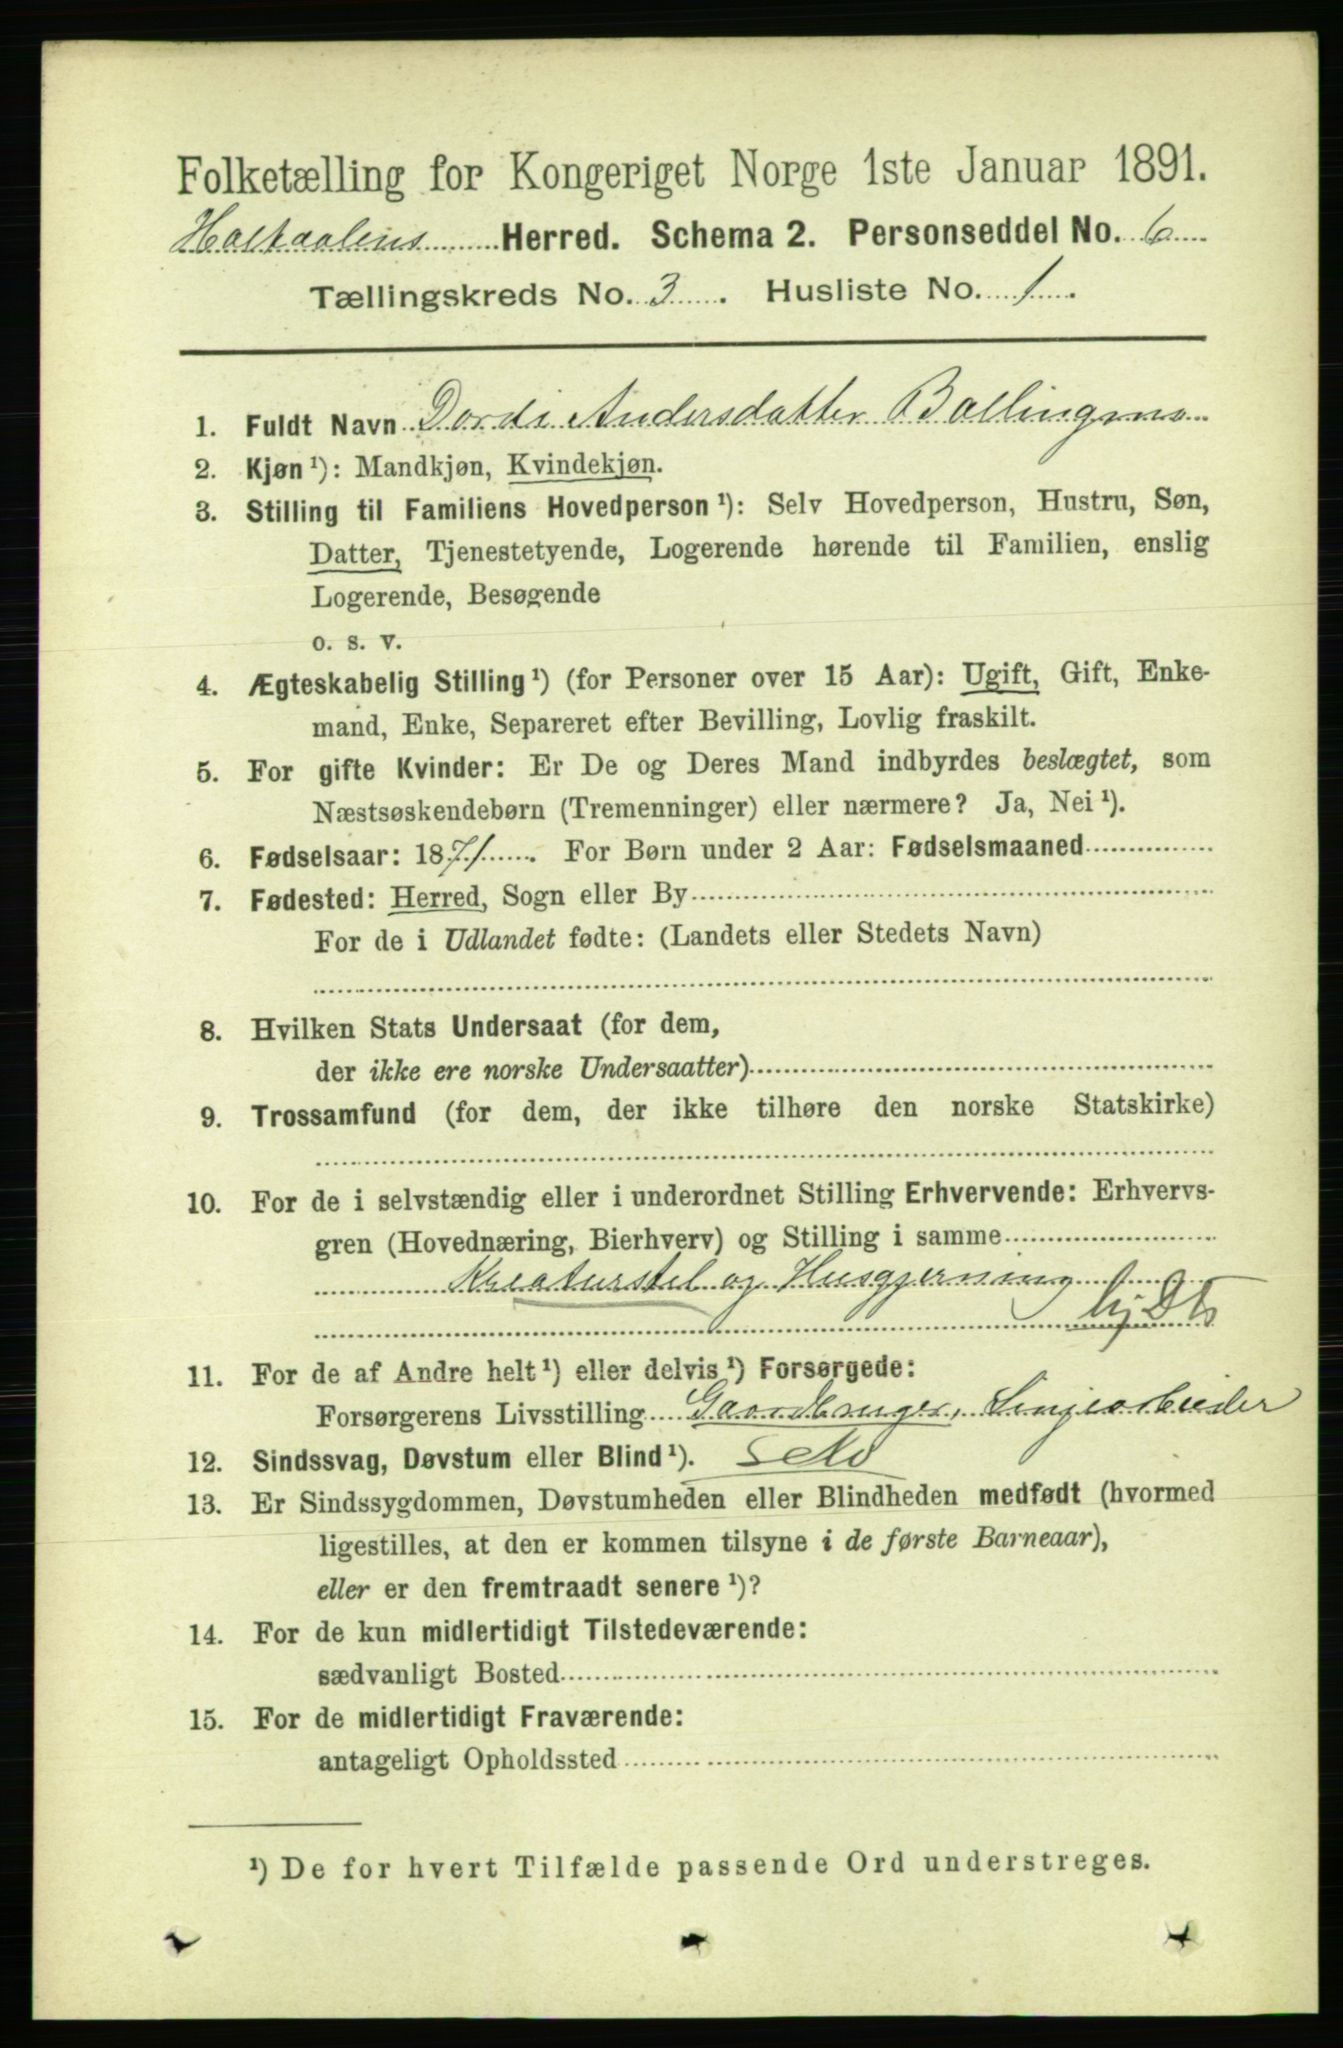 Folketælling for Kongeriget Norge 1ste Januar 1891.
Holtaalens Herred. Schema 2. Personseddel No. 6
Tællingskreds No. 3. Husliste No. 1.
1. Fuldt Navn Dordi Andersdatter Ballingmo
2. Kjøn ¹): Mandkjøn, Kvindekjøn.
3. Stilling til Familiens Hovedperson ¹): Selv Hovedperson, Hustru, Søn,
Datter, Tjenestetyende, Logerende hørende til Familien, enslig
Logerende, Besøgende
o. s. v.
4. Ægteskabelig Stilling ¹) (for Personer over 15 Aar): Ugift, Gift, Enke-
mand, Enke, Separeret efter Bevilling, Lovlig fraskilt.
5. For gifte Kvinder: Er De og Deres Mand indbyrdes beslægtet, som
Næstsøskendebørn (Tremenninger) eller nærmere? Ja, Nei ¹).
6. Fødselsaar: 1871. For Børn under 2 Aar: Fødselsmaaned
7. Fødested: Herred, Sogn eller By
For de i Udlandet fødte: (Landets eller Stedets Navn)
8. Hvilken Stats Undersaat (for dem,
der ikke ere norske Undersaatter)
9. Trossamfund (for dem, der ikke tilhøre den norske Statskirke)
10. For de i selvstændig eller i underordnet Stilling Erhvervende: Erhvervs-
gren (Hovednæring, Bierhverv) og Stilling i samme
Kreaturstel og Husgjerning
11. For de af Andre helt ¹) eller delvis ¹) Forsørgede:
Forsørgerens Livsstilling Gaardbruger, Linjearbeider
12. Sindssvag, Døvstum eller Blind ¹).
13. Er Sindssygdommen, Døvstumheden eller Blindheden medfødt (hvormed
ligestilles, at den er kommen tilsyne i de første Barneaar),
eller er den fremtraadt senere ¹)?
14. For de kun midlertidigt Tilstedeværende:
sædvanligt Bosted
15. For de midlertidigt Fraværende:
antageligt Opholdssted
¹) De for hvert Tilfælde passende Ord understreges.